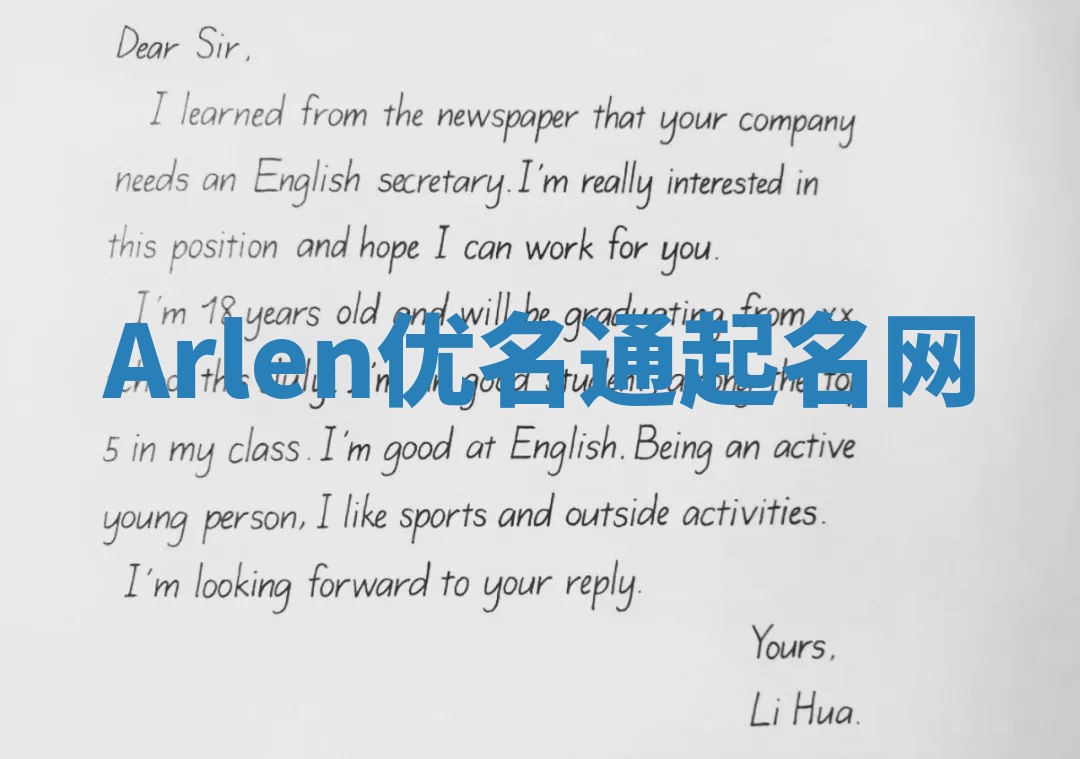 Dear Sir,
I learned from the newspaper that your company
needs an English secretary. I'm really interested in
this position and hope I can work for you.
I'm 18 years old and will be graduating from xx
Arlen优名通起名网
this July. I'm good student, among the top
5 in my class. I'm good at English. Being an active
young person, I like sports and outside activities.
I'm looking forward to your reply.
Yours,
Li Hua.